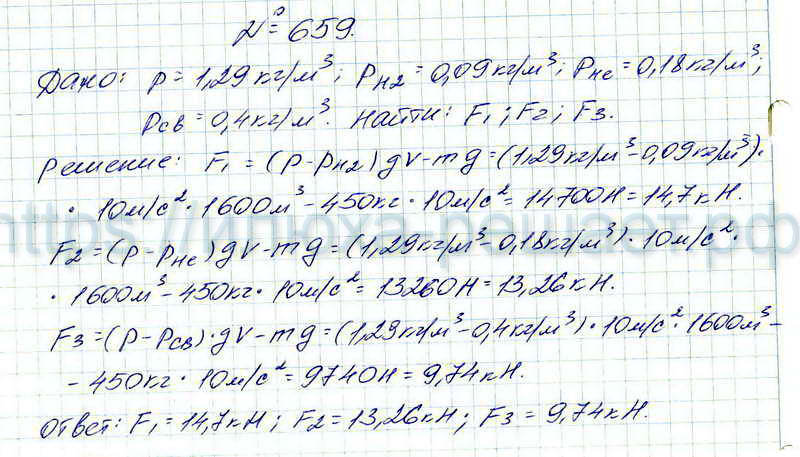 № 659.
Дано: ρ = 1,29 кг/м³; ρн2 = 0,09 кг/м³; ρне = 0,18 кг/м³;
ρсв = 0,4 кг/м³. Найти: F₁; F₂; F₃.
Решение: F₁ = (ρ-ρн2)gV-mg = (1,29 кг/м³-0,09 кг/м³)·
· 10 м/с² · 1600 м³ - 450 кг · 10 м/с² = 14700 Н = 14,7 кН.
https://илюха-решает.рф
F₂ = (ρ-ρне)gV-mg = (1,29 кг/м³-0,18 кг/м³) · 10 м/с² ·
· 1600 м³ - 450 кг · 10 м/с² = 13260 Н = 13,26 кН.
F₃ = (ρ-ρсв)·gV-mg = (1,29 кг/м³-0,4 кг/м³) · 10 м/с² · 1600 м³ -
- 450 кг · 10 м/с² = 9740 Н = 9,74 кН.
Ответ: F₁ = 14,7 кН; F₂ = 13,26 кН; F₃ = 9,74 кН.